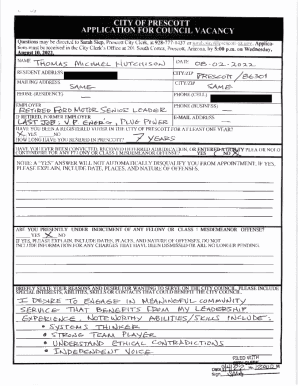 CITY OF PRESCOTT
APPLICATION FOR COUNCIL VACANCY
Questions may be directed to Sarah Siep, Prescott City Clerk, at 928-777-1437 or
tions must be received in the City Clerk's Office at 201 South Cortez, Prescott, Arizona, by 5:00 p.m. on Wednesday,
August 10, 2022.
NAME THOMAS MICHAEL HUTCHISON
DATE 08-02-2022
RESIDENT ADDRESS
CITY/ZIP PRESCOTT/86301
MAILING ADDRESS SAME
CITY/ZIP SAME
PHONE (RESIDENT)
PHONE (CELL)
EMPLOYER RETIRED FORD MOTOR SENIOR LEADER
PHONE (BUSINESS)
IF RETIRED, FORMER EMPLOYER LAST JOB: V.P. ENER'G, PLUG POWER
E-MAIL ADDRESS
HAVE YOU BEEN A REGISTERED VOTER IN THE CITY OF PRESCOTT FOR AT LEAST ONE YEAR?
X YES NO
HOW LONG HAVE YOU RESIDED IN PRESCOTT? 7 YEARS
HAVE YOU EVER BEEN CONVICTED, RECEIVED DEFERRED ADJUDICATION, OR ENTERED A GUILTY PLEA OR NOLO
CONTENDERE FOR ANY FELONY OR CLASS 1 MISDEMEANOR OFFENSE? YES X NO
NOTE: A "YES" ANSWER WILL NOT AUTOMATICALLY DISQUALIFY YOU FROM APPOINTMENT. IF YES,
PLEASE EXPLAIN. INCLUDE DATE, PLACES, AND NATURE OF OFFENSES.
ARE YOU PRESENTLY UNDER INDICTMENT OF ANY FELONY OR CLASS 1 MISDEMEANOR OFFENSE?
YES X NO
IF YES, PLEASE EXPLAIN. INCLUDE DATES, PLACES, AND NATURE OF OFFENSES. DO NOT
INCLUDE INFORMATION FOR ANY CHARGES THAT HAVE BEEN DISMISSED OR ARE NO LONGER PENDING.
BRIEFLY STATE YOUR REASONS AND DESIRE FOR WANTING TO SERVE ON THE CITY COUNCIL. PLEASE INCLUDE
SPECIAL INTERESTS, ABILITIES, SKILLS OR CONTACTS THAT COULD BENEFIT THE CITY COUNCIL.
I DESIRE TO ENGAGE IN MEANINGFUL COMMUNITY
SERVICE THAT BENEFITS FROM MY LEADERSHIP
EXPERIENCE, NOTEWORTHY ABILITIES/SKILLS INCLUDE:
• SYSTEMS THINKER
• STRONG TEAM PLAYER
• UNDERSTAND ETHICAL CONTRADICTIONS
• INDEPENDENT VOICE
FILED WITH